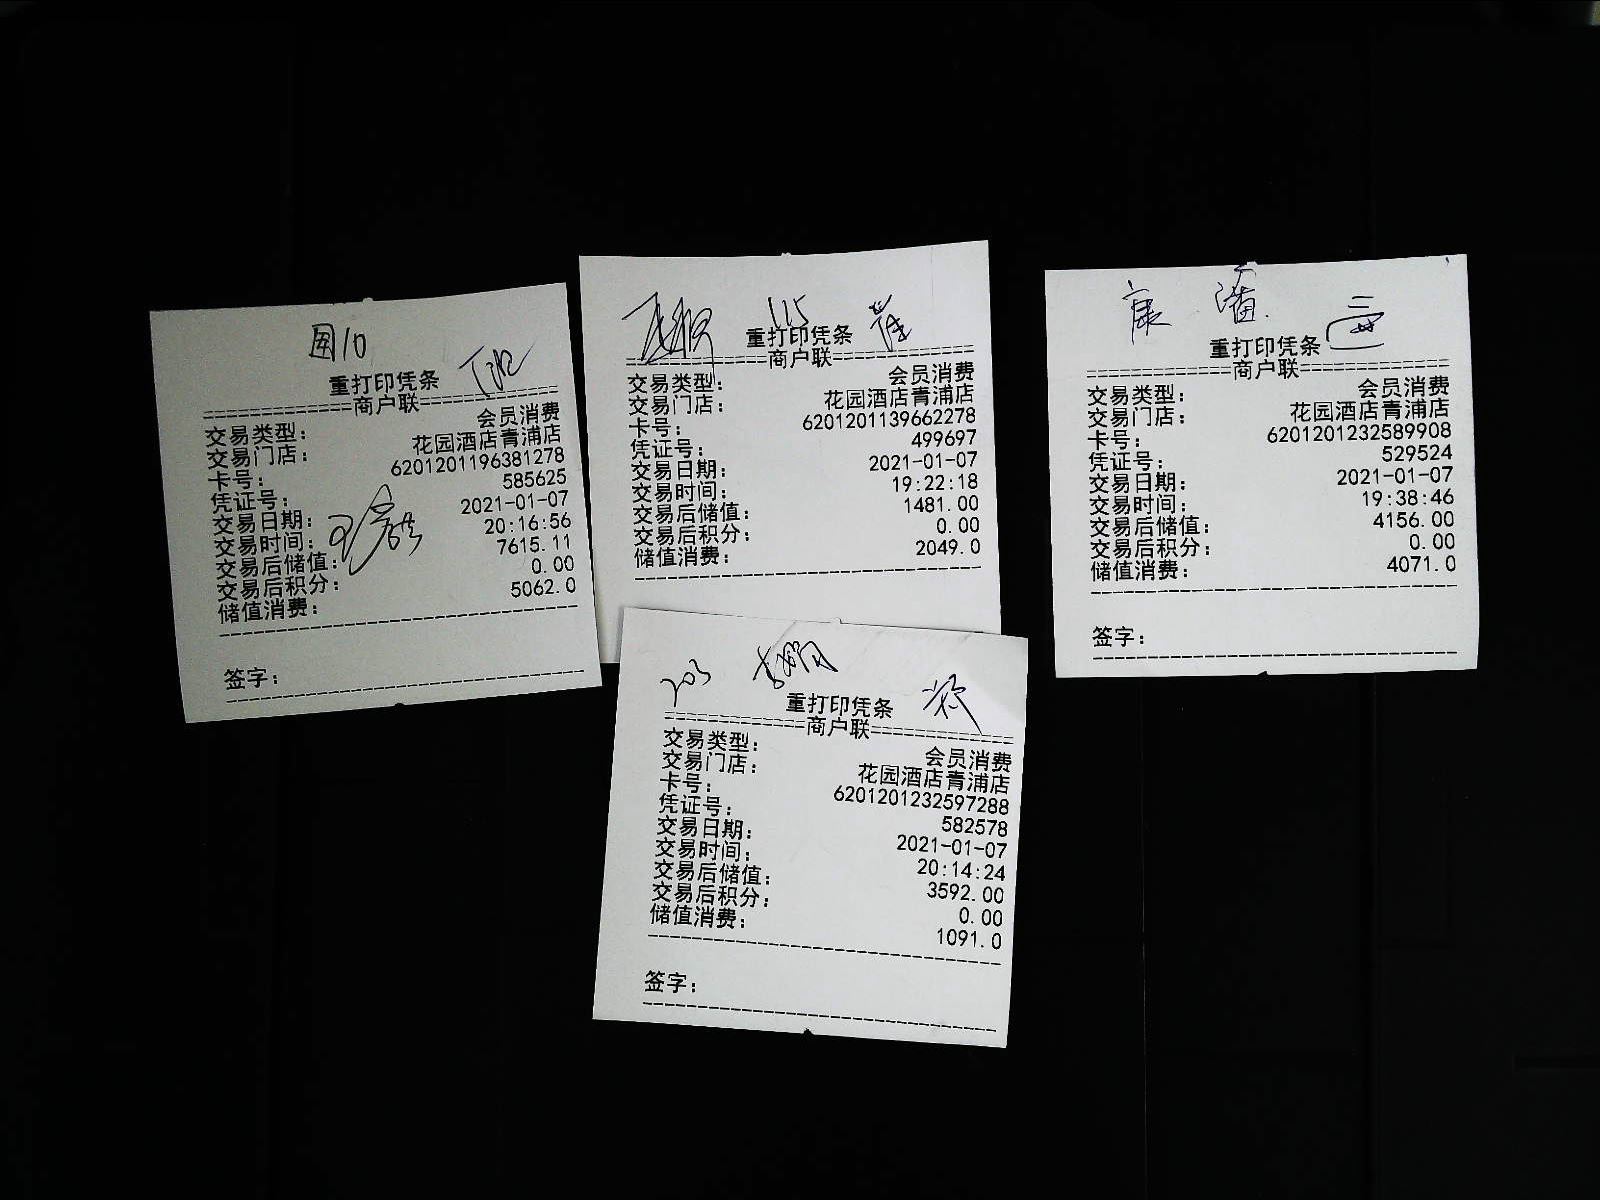 重打印凭条
商户联
交易类型： 会员消费
交易门店： 花园酒店青浦店
卡号： 6201201196381278
凭证号： 585625
交易日期： 2021-01-07
交易时间： 20:16:56
交易后储值： 7615.11
交易后积分： 0.00
储值消费： 5062.0
签字：
115
重打印凭条
商户联
交易类型： 会员消费
交易门店： 花园酒店青浦店
卡号： 6201201139662278
凭证号： 499697
交易日期： 2021-01-07
交易时间： 19:22:18
交易后储值： 1481.00
交易后积分： 0.00
储值消费： 2049.0
康
重打印凭条
商户联
交易类型： 会员消费
交易门店： 花园酒店青浦店
卡号： 6201201232589908
凭证号： 529524
交易日期： 2021-01-07
交易时间： 19:38:46
交易后储值： 4156.00
交易后积分： 0.00
储值消费： 4071.0
签字：
203
重打印凭条
商户联
交易类型： 会员消费
交易门店： 花园酒店青浦店
卡号： 6201201232597288
凭证号： 582578
交易日期： 2021-01-07
交易时间： 20:14:24
交易后储值： 3592.00
交易后积分： 0.00
储值消费： 1091.0
签字：